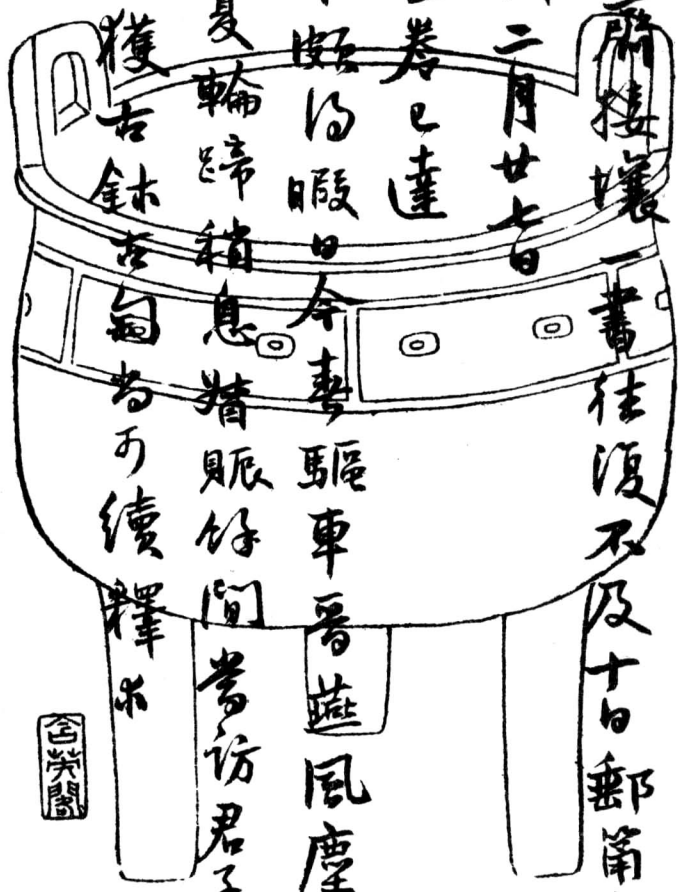 接壤一書往復不及十日郵筩
二月廿七日
已達
頗得暇日今春驅車晉燕風塵
夏輪蹄稍息賑餘間當訪君子
獲古鉥古匋尚可續釋也
含英閣